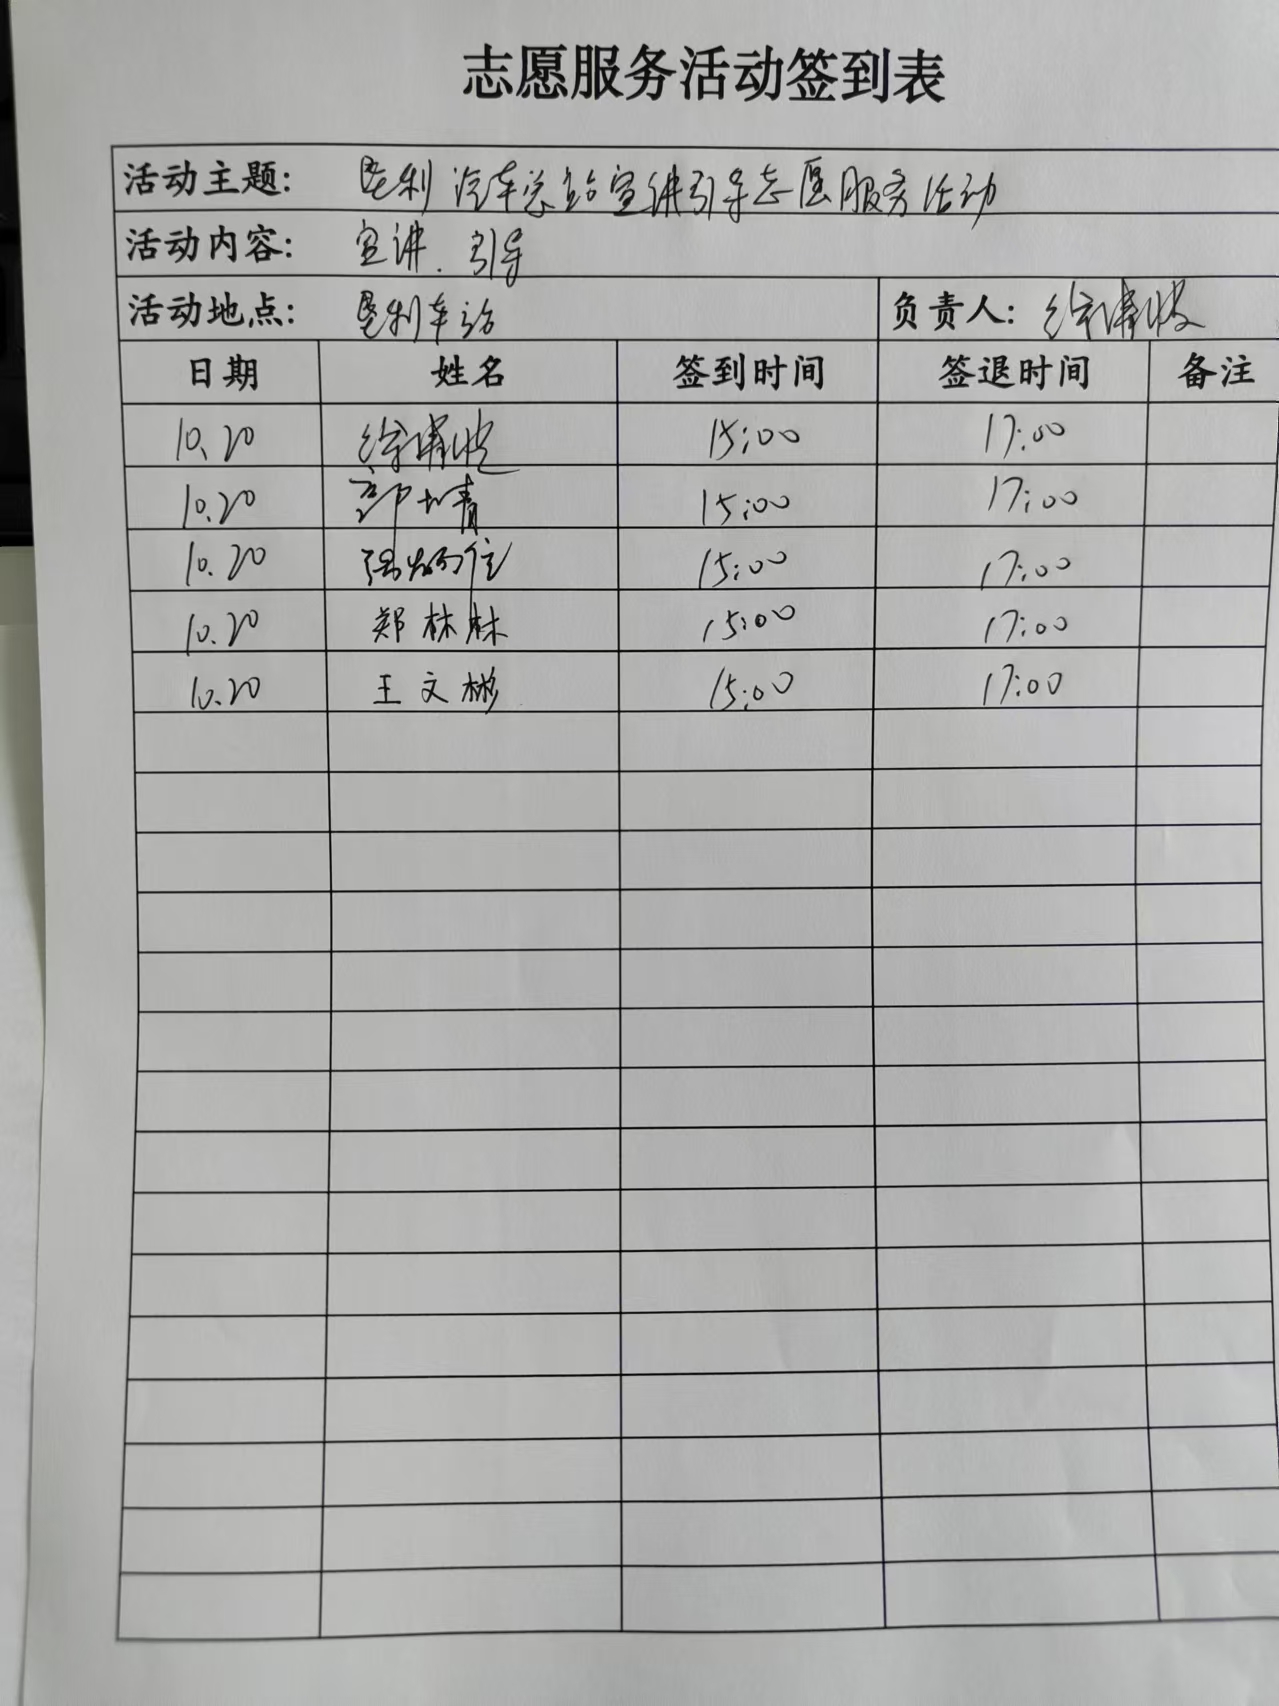 志愿服务活动签到表
活动主题: 垦利汽车总站宣讲引导志愿服务活动
活动内容: 宣讲、引导
活动地点: 垦利车站 负责人: 徐
日期 姓名 签到时间 签退时间 备注
10.20 徐 15:00 17:00
10.20 郭 15:00 17:00
10.20 15:00 17:00
10.20 郑林林 15:00 17:00
10.20 王文彬 15:00 17:00